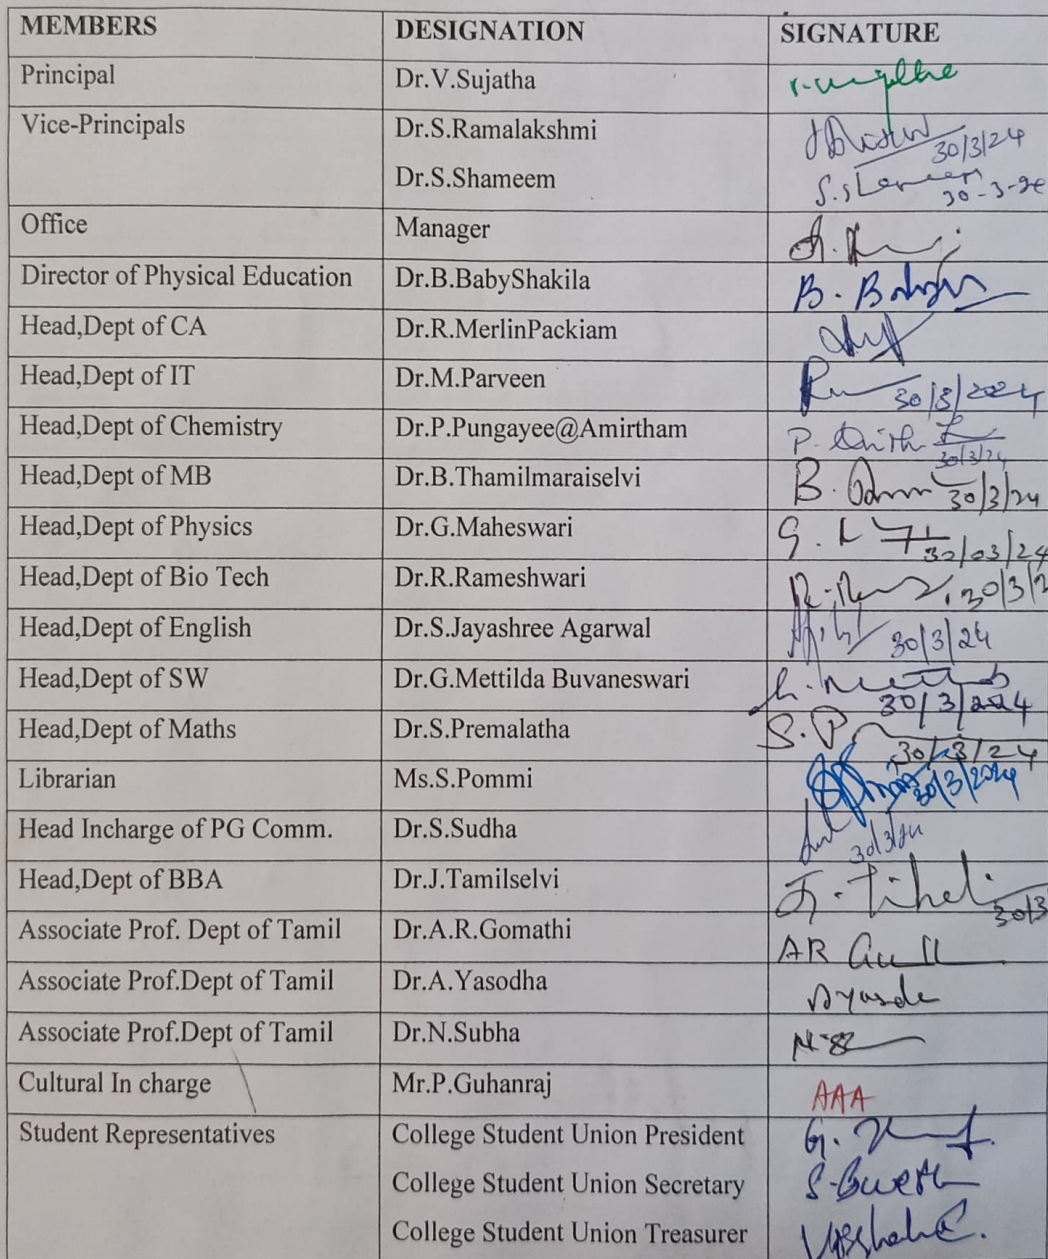 MEMBERS DESIGNATION SIGNATURE
Principal Dr.V.Sujatha
Vice-Principals Dr.S.Ramalakshmi 30/3/24
Dr.S.Shameem S.Shameem 30-3-24
Office Manager
Director of Physical Education Dr.B.BabyShakila B.
Head,Dept of CA Dr.R.MerlinPackiam
Head,Dept of IT Dr.M.Parveen 30/3/2024
Head,Dept of Chemistry Dr.P.Pungayee@Amirtham P. 30/3/24
Head,Dept of MB Dr.B.Thamilmaraiselvi B. 30/3/24
Head,Dept of Physics Dr.G.Maheswari G. 30/03/24
Head,Dept of Bio Tech Dr.R.Rameshwari 30/3/2
Head,Dept of English Dr.S.Jayashree Agarwal 30/3/24
Head,Dept of SW Dr.G.Mettilda Buvaneswari 30/3/2024
Head,Dept of Maths Dr.S.Premalatha S.P 30/3/24
Librarian Ms.S.Pommi 30/3/2024
Head Incharge of PG Comm. Dr.S.Sudha 30/3/24
Head,Dept of BBA Dr.J.Tamilselvi 30/3
Associate Prof. Dept of Tamil Dr.A.R.Gomathi AR
Associate Prof.Dept of Tamil Dr.A.Yasodha AYasodh
Associate Prof.Dept of Tamil Dr.N.Subha
Cultural In charge Mr.P.Guhanraj AAA
Student Representatives College Student Union President G.
College Student Union Secretary
College Student Union Treasurer